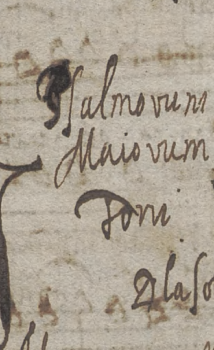 Psalmorum
Maiorum
Toni